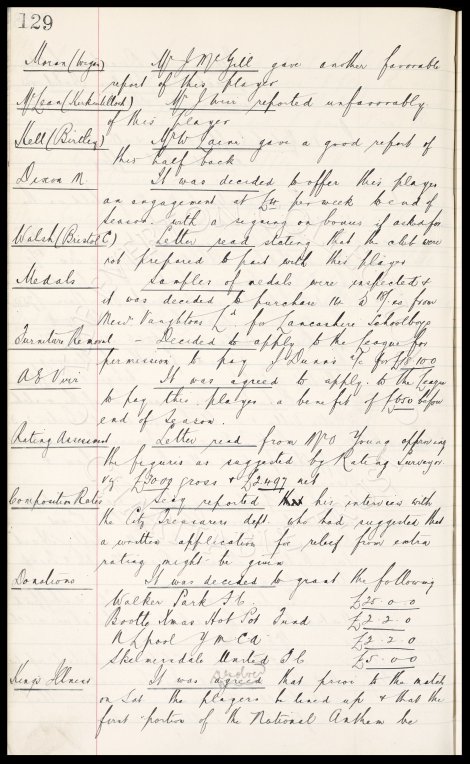 129
Moran (Wigan) Mr J McGill gave another favorable
report of this player
McLean (Kirkintilloch) Mr J Weir reported unfavorably
of this player
Kell (Birtley) Mr W gave a good report of
this half back
Dixon M It was decided to offer this player
an engagement at £4 per week to end of
season. with a signing on bonus if asked for
Walsh (Bristol C) Letter read stating that the club were
not prepared to part with this player
Medals Samples of medals were inspected &
it was decided to purchase 14 @ from
Messrs Vaughtons Ld for Lancashire Schoolboys
Furniture Removal - Decided to apply to the League for
permission to pay J Dunn's a/c for £8.10.0
It was agreed to apply to the League
to pay this player a benefit of £650 before
end of Season.
Rating Assessment Letter read from Young approving
the figures as suggested by Rating Surveyor
viz £3000 gross & £2497 nett
Composition Rates Secy reported his interview with
the City Treasurers dept. who had suggested that
a written application for relief from extra
rating might be given
Donations It was decided to grant the following
Walker Park F.C. £25.0.0
Bootle Xmas Hot Pot Fund £2.2.0
N L'pool YMCA £2.2.0
Skelmersdale United F.C £5.0.0
Kings Illness It was agreed that prior to the match
on Sat. the players be lined up & that the
first portion of the National Anthem be